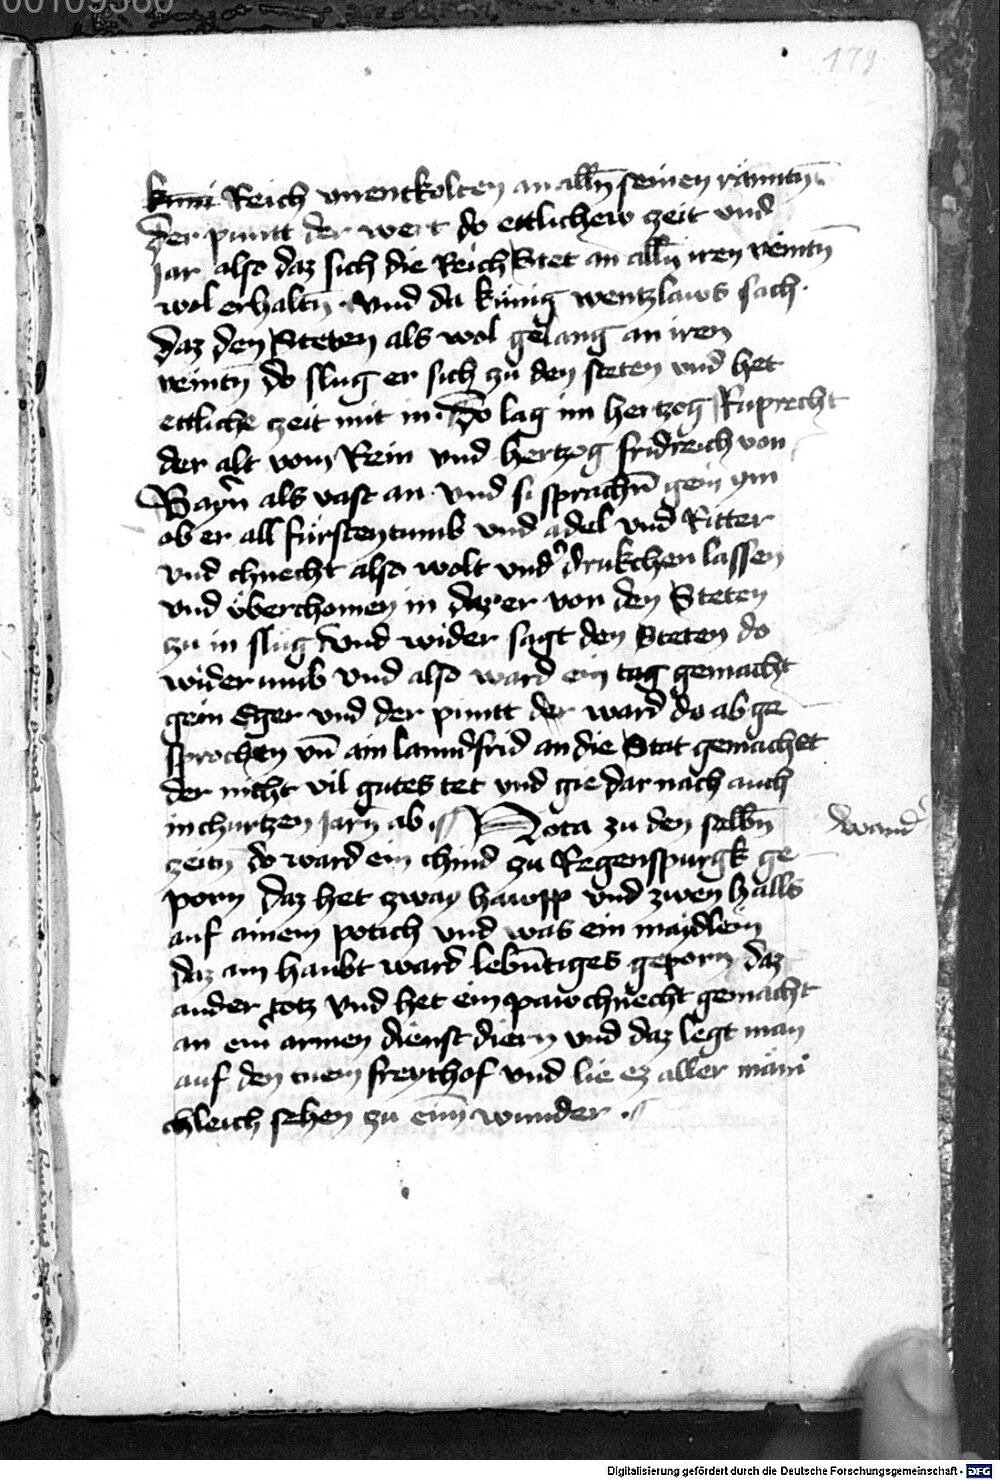 179
Reich unentkolten an alln̄ seinen ränntn̄.
Der puntt der wert do ettlichew zeit und
Jar also daz sich die Reich Stet an alln̄ iren veintn̄
wol erhaltn̄. Vnd da künig wentzlaws sach.
daz den Steten als wol gelang an iren
veintn̄ do slug er sich zu den steten vnd het
ettliche zeit mit in. Do lag im hertzog Ruprecht
der alt vom Rein vnd hertzog fridreich von
Bayrn̄ als vast an. Vnd si sprachn̄ gein ym
ob er all fürstentumb vnd adel vnd Ritter
vnd chnecht also wolt vnd drukchen lassen
vnd überchomen in daz er von den Steten
zu in slug Vnd wider sagt den Steten do
widerumb Vnd also ward ein tag gemacht
gein Eger vnd der puntt der ward do ab ge
sprochen vn̄ ain lanndfrid an die Stat gemachet
der nicht vil gutes tet vnd gie dar nach auch
in churtzen Jarn̄ ab. Nota zu den selbn̄
zeitn̄ do ward ein chind zu Regenspurgk ge
porn daz het zway hawpp vnd zwen halls
auf ainem potich vnd was ein maydlein
daz ain haubt ward lebn̄tiges geporn daz
ander totz Vnd het ein pawchnecht gemacht
an ein̄ armen dienst diern vnd daz legt man
auf den tuem freythof vnd lie ez aller mäni
chleich sehen zu ein̄ wunder.
Digitalisierung gefördert durch die Deutsche Forschungsgemeinschaft - DFG